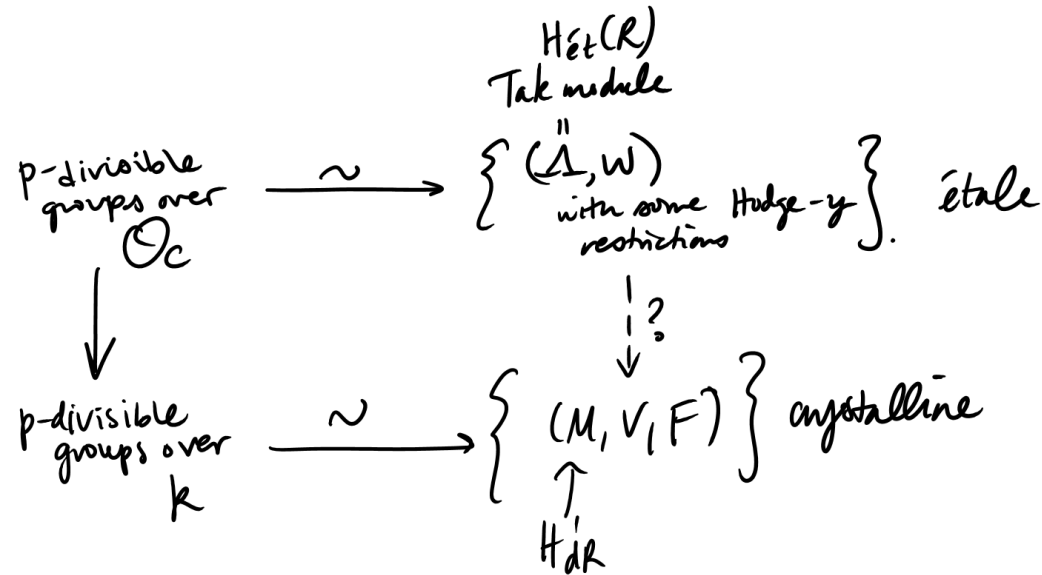 Hét(R)
Tate module
=
p-divisible groups over O_C
∼
{ (Λ, W) with some Hodge-y restrictions }.
étale
?
p-divisible groups over k
∼
{ (M, V, F) }
crystalline
H¹dR